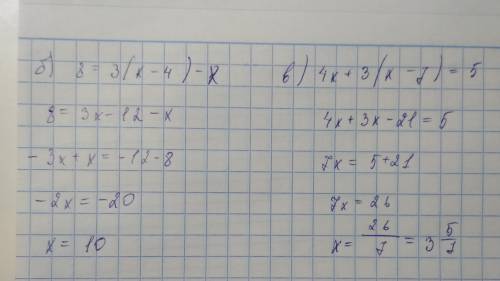 б) 8 = 3(x - 4) - x
8 = 3x - 12 - x
- 3x + x = -12 - 8
- 2x = -20
x = 10
в) 4x + 3(x - 7) = 5
4x + 3x - 21 = 5
7x = 5 + 21
7x = 26
x = 26/7 = 3 5/7